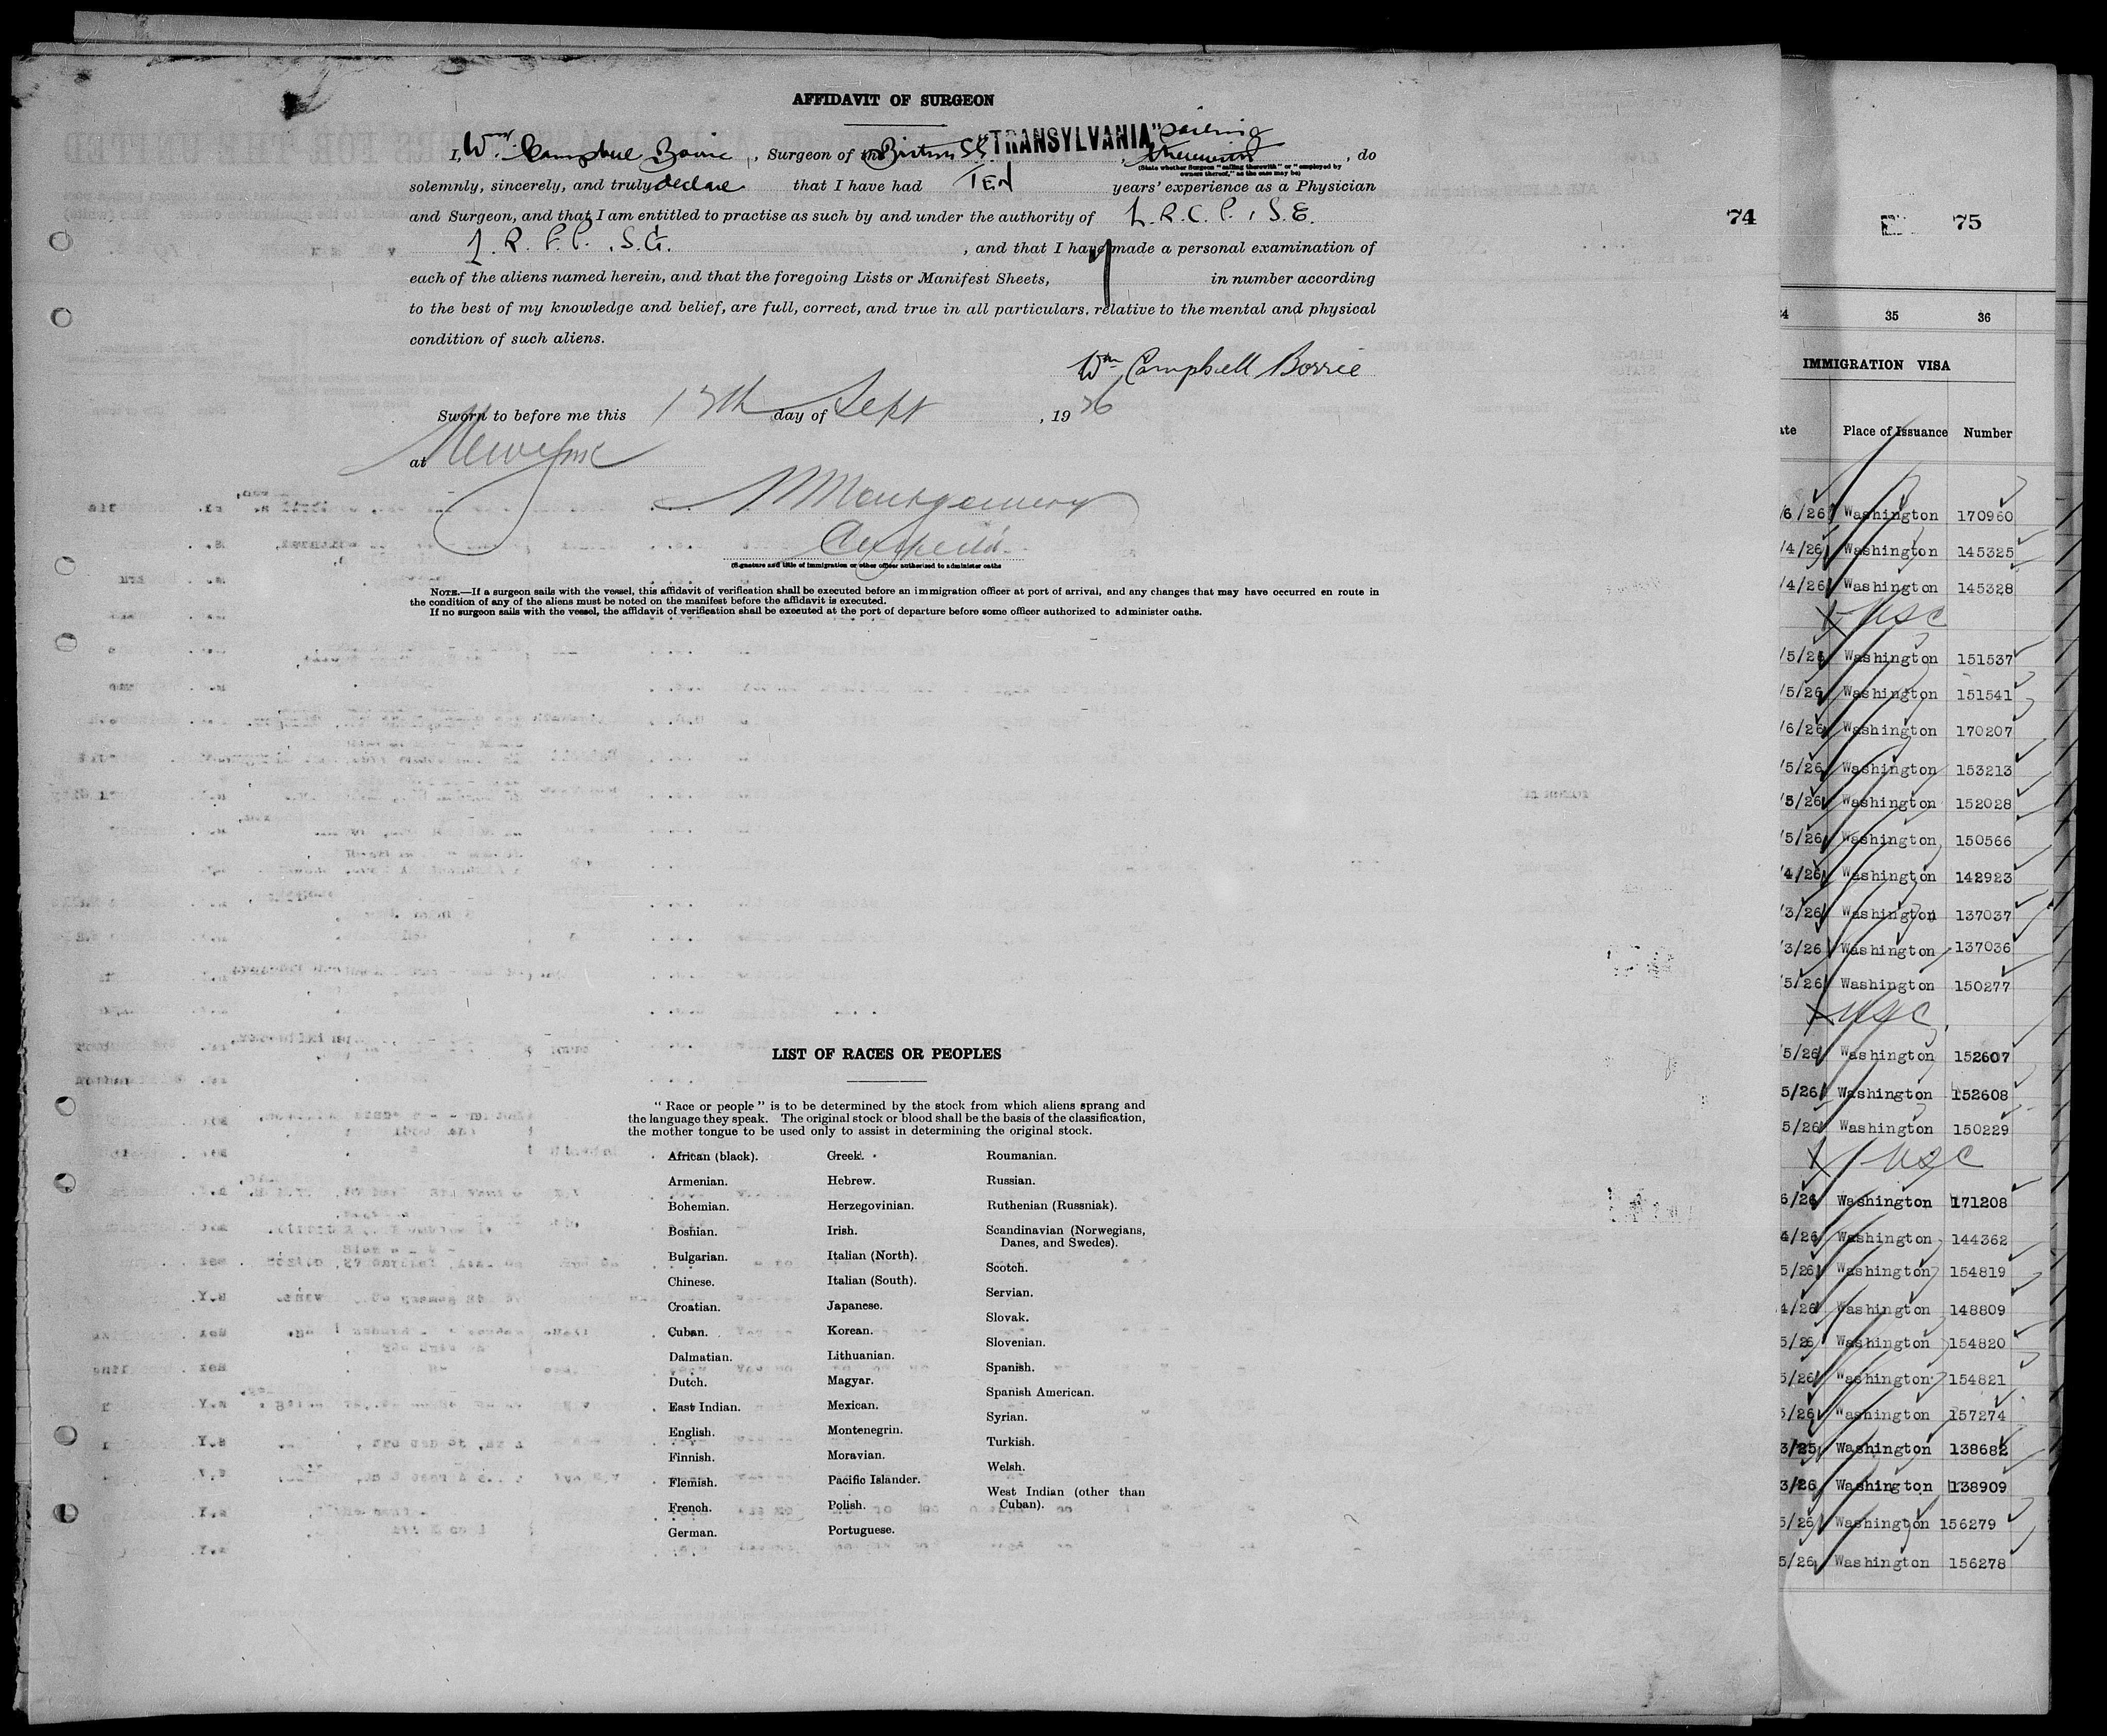 AFFIDAVIT OF SURGEON
I, Wm. Campbell Borrie, Surgeon of the British SS. "TRANSYLVANIA" sailing therewith, do
(State whether Surgeon "sailing therewith" or "employed by
owners thereof," as the case may be)
solemnly, sincerely, and truly declare that I have had TEN years' experience as a Physician
and Surgeon, and that I am entitled to practise as such by and under the authority of L. R. C. P., S. E.
L. R. F. P. S. G., and that I have made a personal examination of
each of the aliens named herein, and that the foregoing Lists or Manifest Sheets, 1 in number according
to the best of my knowledge and belief, are full, correct, and true in all particulars, relative to the mental and physical
condition of such aliens.
Wm Campbell Borrie
Sworn to before me this 13th day of Sept, 1926
at New York
Montgomery
(Signature and title of immigration or other officer authorized to administer oaths
NOTE.—If a surgeon sails with the vessel, this affidavit of verification shall be executed before an immigration officer at port of arrival, and any changes that may have occurred en route in
the condition of any of the aliens must be noted on the manifest before the affidavit is executed.
If no surgeon sails with the vessel, the affidavit of verification shall be executed at the port of departure before some officer authorized to administer oaths.
LIST OF RACES OR PEOPLES
"Race or people" is to be determined by the stock from which aliens sprang and
the language they speak. The original stock or blood shall be the basis of the classification,
the mother tongue to be used only to assist in determining the original stock.
African (black).
Armenian.
Bohemian.
Bosnian.
Bulgarian.
Chinese.
Croatian.
Cuban.
Dalmatian.
Dutch.
East Indian.
English.
Finnish.
Flemish.
French.
German.
Greek.
Hebrew.
Herzegovinian.
Irish.
Italian (North).
Italian (South).
Japanese.
Korean.
Lithuanian.
Magyar.
Mexican.
Montenegrin.
Moravian.
Pacific Islander.
Polish.
Portuguese.
Roumanian.
Russian.
Ruthenian (Russniak).
Scandinavian (Norwegians,
Danes, and Swedes).
Scotch.
Servian.
Slovak.
Slovenian.
Spanish.
Spanish American.
Syrian.
Turkish.
Welsh.
West Indian (other than
Cuban).
74
75
4 35 36
IMMIGRATION VISA
ate Place of Issuance Number
/6/26 Washington 170960
/4/26 Washington 145325
/4/26 Washington 145328
X USC
/5/26 Washington 151537
/5/26 Washington 151541
/6/26 Washington 170207
/5/26 Washington 153213
/5/26 Washington 152028
/5/26 Washington 150566
/4/26 Washington 142923
/3/26 Washington 137037
/3/26 Washington 137036
/5/26 Washington 150277
X USC
/5/26 Washington 152607
5/26 Washington 152608
5/26 Washington 150229
X USC
6/26 Washington 171208
4/26 Washington 144362
5/26 Washington 154819
4/26 Washington 148809
5/26 Washington 154820
5/26 Washington 154821
5/26 Washington 157274
3/25 Washington 138682
3/26 Washington 138909
5/26 Washington 156279
5/26 Washington 156278